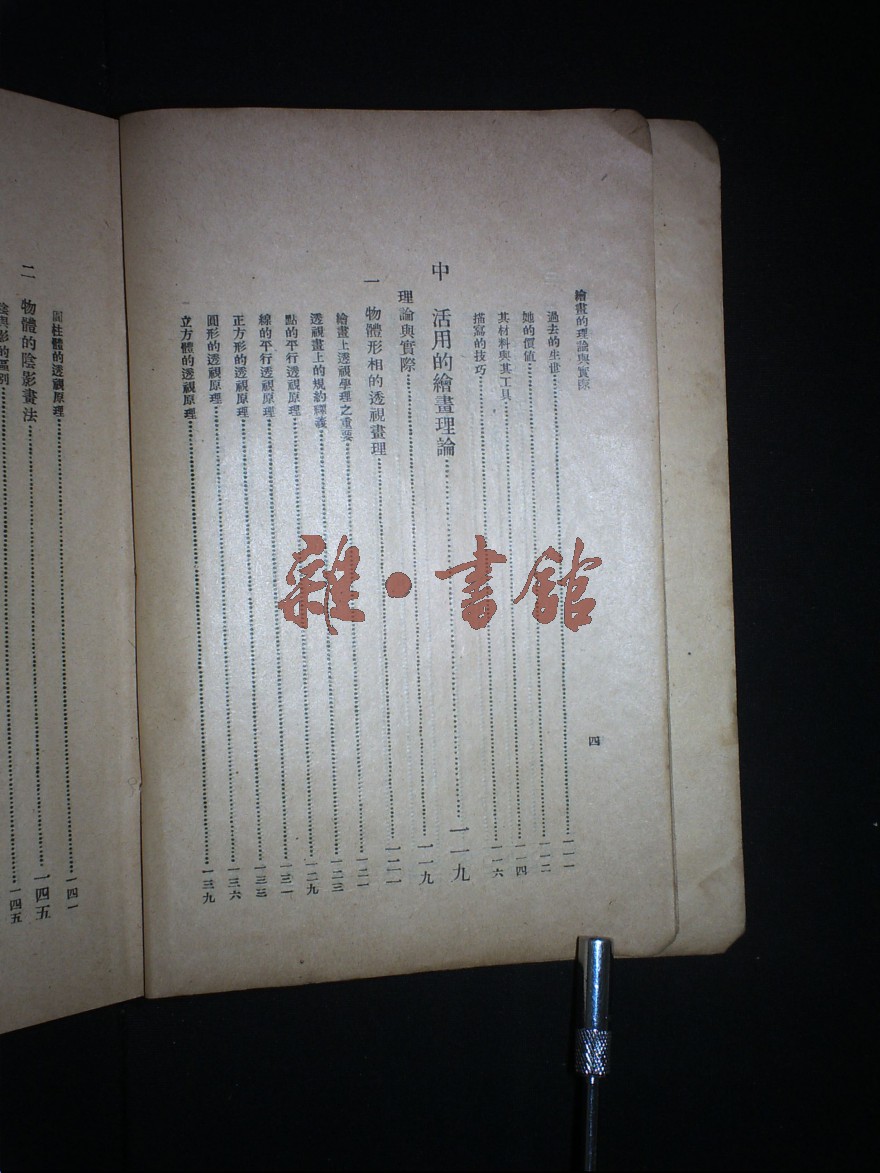 繪畫的理論與實際 四
過去的生世……一一一
她的價值……一一二
其材料與其工具……一一四
描寫的技巧……一一六
中 活用的繪畫理論……一一九
理論與實際……一一九
一 物體形相的透視畫理……一二一
繪畫上透視學理之重要……一二一
透視畫上的規約釋義……一二三
點的平行透視原理……一二九
線的平行透視原理……一三一
正方形的透視原理……一三三
圓形的透視原理……一三六
立方體的透視原理……一三九
圓柱體的透視原理……一四一
二 物體的陰影畫法……一四五
陰與影的區別……一四五
雜·書館